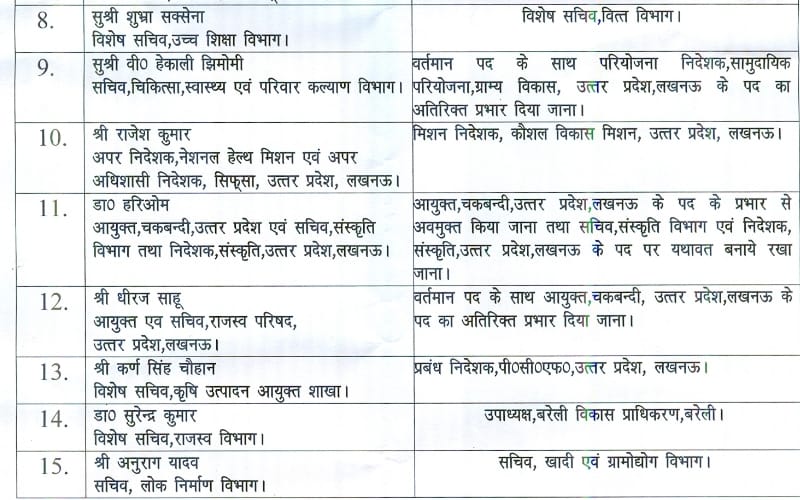 8.
सुश्री शुभ्रा सक्सेना
विशेष सचिव,उच्च शिक्षा विभाग।
विशेष सचिव,वित्त विभाग।
9.
सुश्री वी0 हेकाली झिमोमी
सचिव,चिकित्सा,स्वास्थ्य एवं परिवार कल्याण विभाग।
वर्तमान पद के साथ परियोजना निदेशक,सामुदायिक
परियोजना,ग्राम्य विकास, उत्तर प्रदेश,लखनऊ के पद का
अतिरिक्त प्रभार दिया जाना।
10.
श्री राजेश कुमार
अपर निदेशक,नेशनल हेल्थ मिशन एवं अपर
अधिशासी निदेशक, सिफ्सा, उत्तर प्रदेश, लखनऊ।
मिशन निदेशक, कौशल विकास मिशन, उत्तर प्रदेश, लखनऊ।
11.
डा0 हरिओम
आयुक्त,चकबन्दी,उत्तर प्रदेश एवं सचिव,संस्कृति
विभाग तथा निदेशक,संस्कृति,उत्तर प्रदेश,लखनऊ।
आयुक्त,चकबन्दी,उत्तर प्रदेश,लखनऊ के पद के प्रभार से
अवमुक्त किया जाना तथा सचिव,संस्कृति विभाग एवं निदेशक,
संस्कृति,उत्तर प्रदेश,लखनऊ के पद पर यथावत बनाये रखा
जाना।
12.
श्री धीरज साहू
आयुक्त एव सचिव,राजस्व परिषद,
उत्तर प्रदेश,लखनऊ।
वर्तमान पद के साथ आयुक्त,चकबन्दी, उत्तर प्रदेश,लखनऊ के
पद का अतिरिक्त प्रभार दिया जाना।
13.
श्री कर्ण सिंह चौहान
विशेष सचिव,कृषि उत्पादन आयुक्त शाखा।
प्रबंध निदेशक,पी0सी0एफ0,उत्तर प्रदेश, लखनऊ।
14.
डा0 सुरेन्द्र कुमार
विशेष सचिव,राजस्व विभाग।
उपाध्यक्ष,बरेली विकास प्राधिकरण,बरेली।
15.
श्री अनुराग यादव
सचिव, लोक निर्माण विभाग।
सचिव, खादी एवं ग्रामोद्योग विभाग।